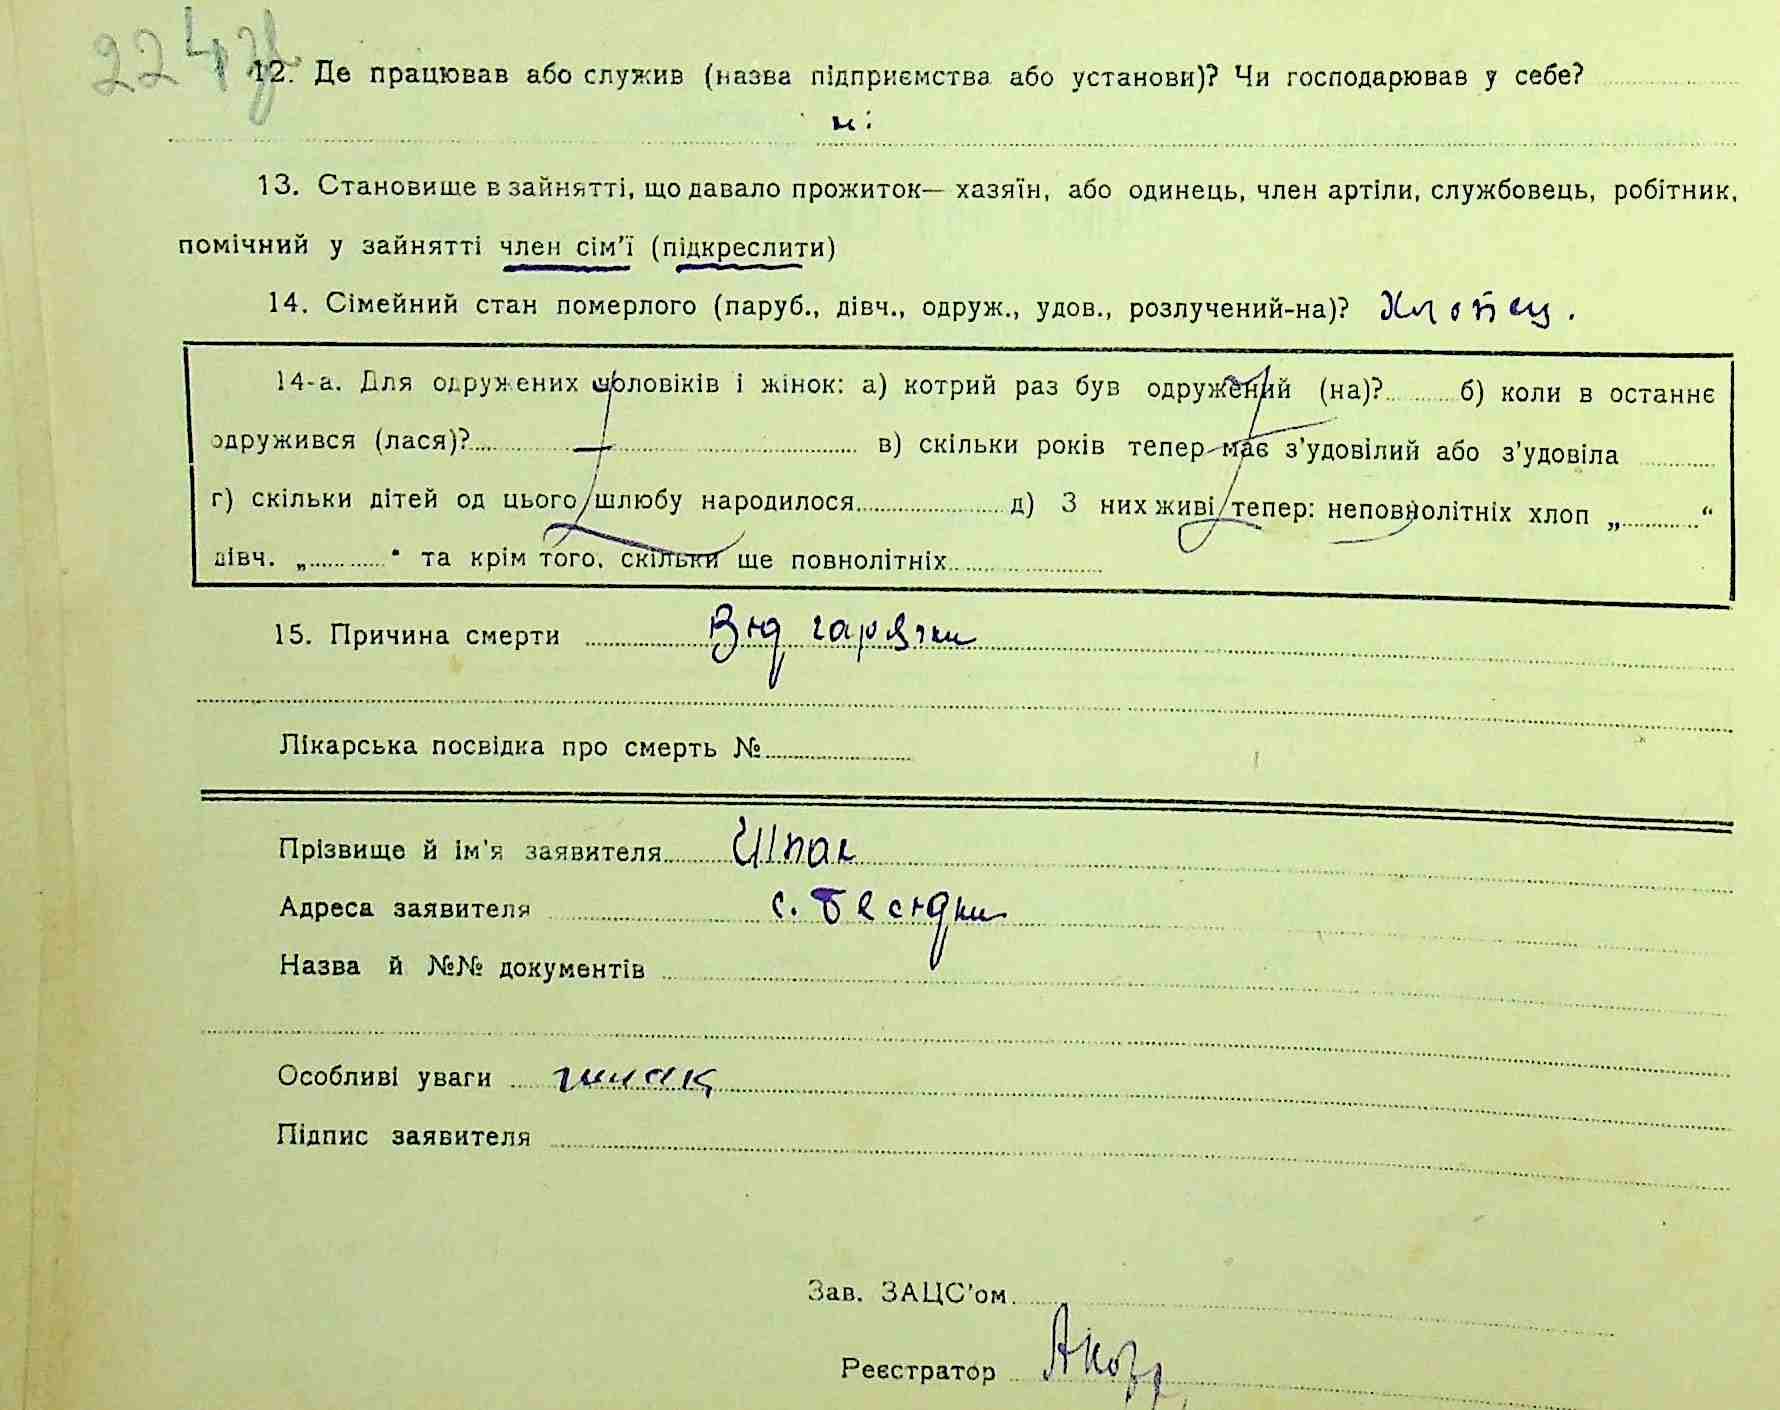 224
12. Де працював або служив (назва підприємства або установи)? Чи господарював у себе?
ні
13. Становище в зайнятті, що давало прожиток— хазяїн, або одинець, член артіли, службовець, робітник,
помічний у зайнятті член сім'ї (підкреслити)
14. Сімейний стан померлого (паруб., дівч., одруж., удов., розлучений-на)? Хлопец.
14-а. Для одружених чоловіків і жінок: а) котрий раз був одружений (на)? б) коли в останнє
одружився (лася)? в) скільки років тепер має з'удовілий або з'удовіла
г) скільки дітей од цього шлюбу народилося д) З них живі тепер: неповнолітніх хлоп „ “
дівч. „ “ та крім того, скільки ще повнолітніх
15. Причина смерти Від гарячки
Лікарська посвідка про смерть №
Прізвище й ім'я заявителя Шпак
Адреса заявителя с. Бесідки
Назва й №№ документів
Особливі уваги
Підпис заявителя
Зав. ЗАЦС'ом
Реєстратор